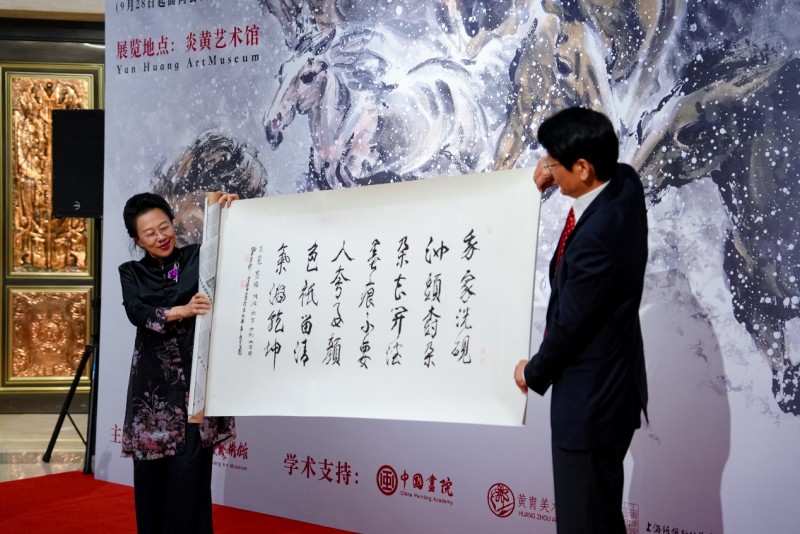 (9月28日起面向公
展览地点：炎黄艺术馆
Yan Huang ArtMuseum
我家洗硯
池頭樹朵
朵花開淡
墨痕不要
人夸好顏
色祇留清
氣滿乾坤
主
ang Art Museum
学术支持：
中国畫院
China Painting Academy
黄胄美
HUANG ZHOU A
上海